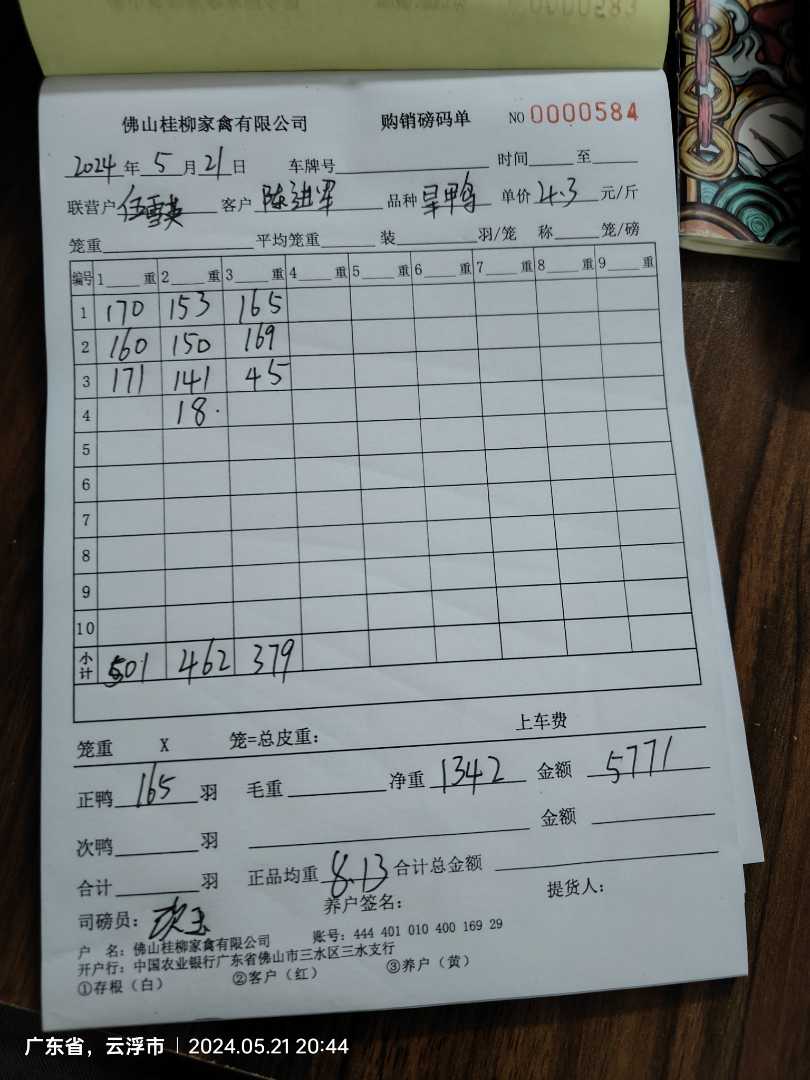 0000583
佛山桂柳家禽有限公司 购销磅码单 NO 0000584
2024 年 5 月 21 日 车牌号 时间 至
联营户 伍雪英 客户 陈进军 品种 旱鸭 单价 4.3 元/斤
笼重 平均笼重 装 羽/笼 称 笼/磅
编号 1 重 2 重 3 重 4 重 5 重 6 重 7 重 8 重 9 重
1 170 153 165
2 160 150 169
3 171 141 45
4 18.
5
6
7
8
9
10
小计 501 462 379
笼重 X 笼=总皮重: 上车费
正鸭 165 羽 毛重 净重 1342 金额 5771
次鸭 羽 金额
合计 羽 正品均重 8.13 合计总金额
司磅员: 养户签名: 提货人:
户 名: 佛山桂柳家禽有限公司 账号: 444 401 010 400 169 29
开户行: 中国农业银行广东省佛山市三水区三水支行
①存根(白) ②客户(红) ③养户(黄)
广东省，云浮市 | 2024.05.21 20:44